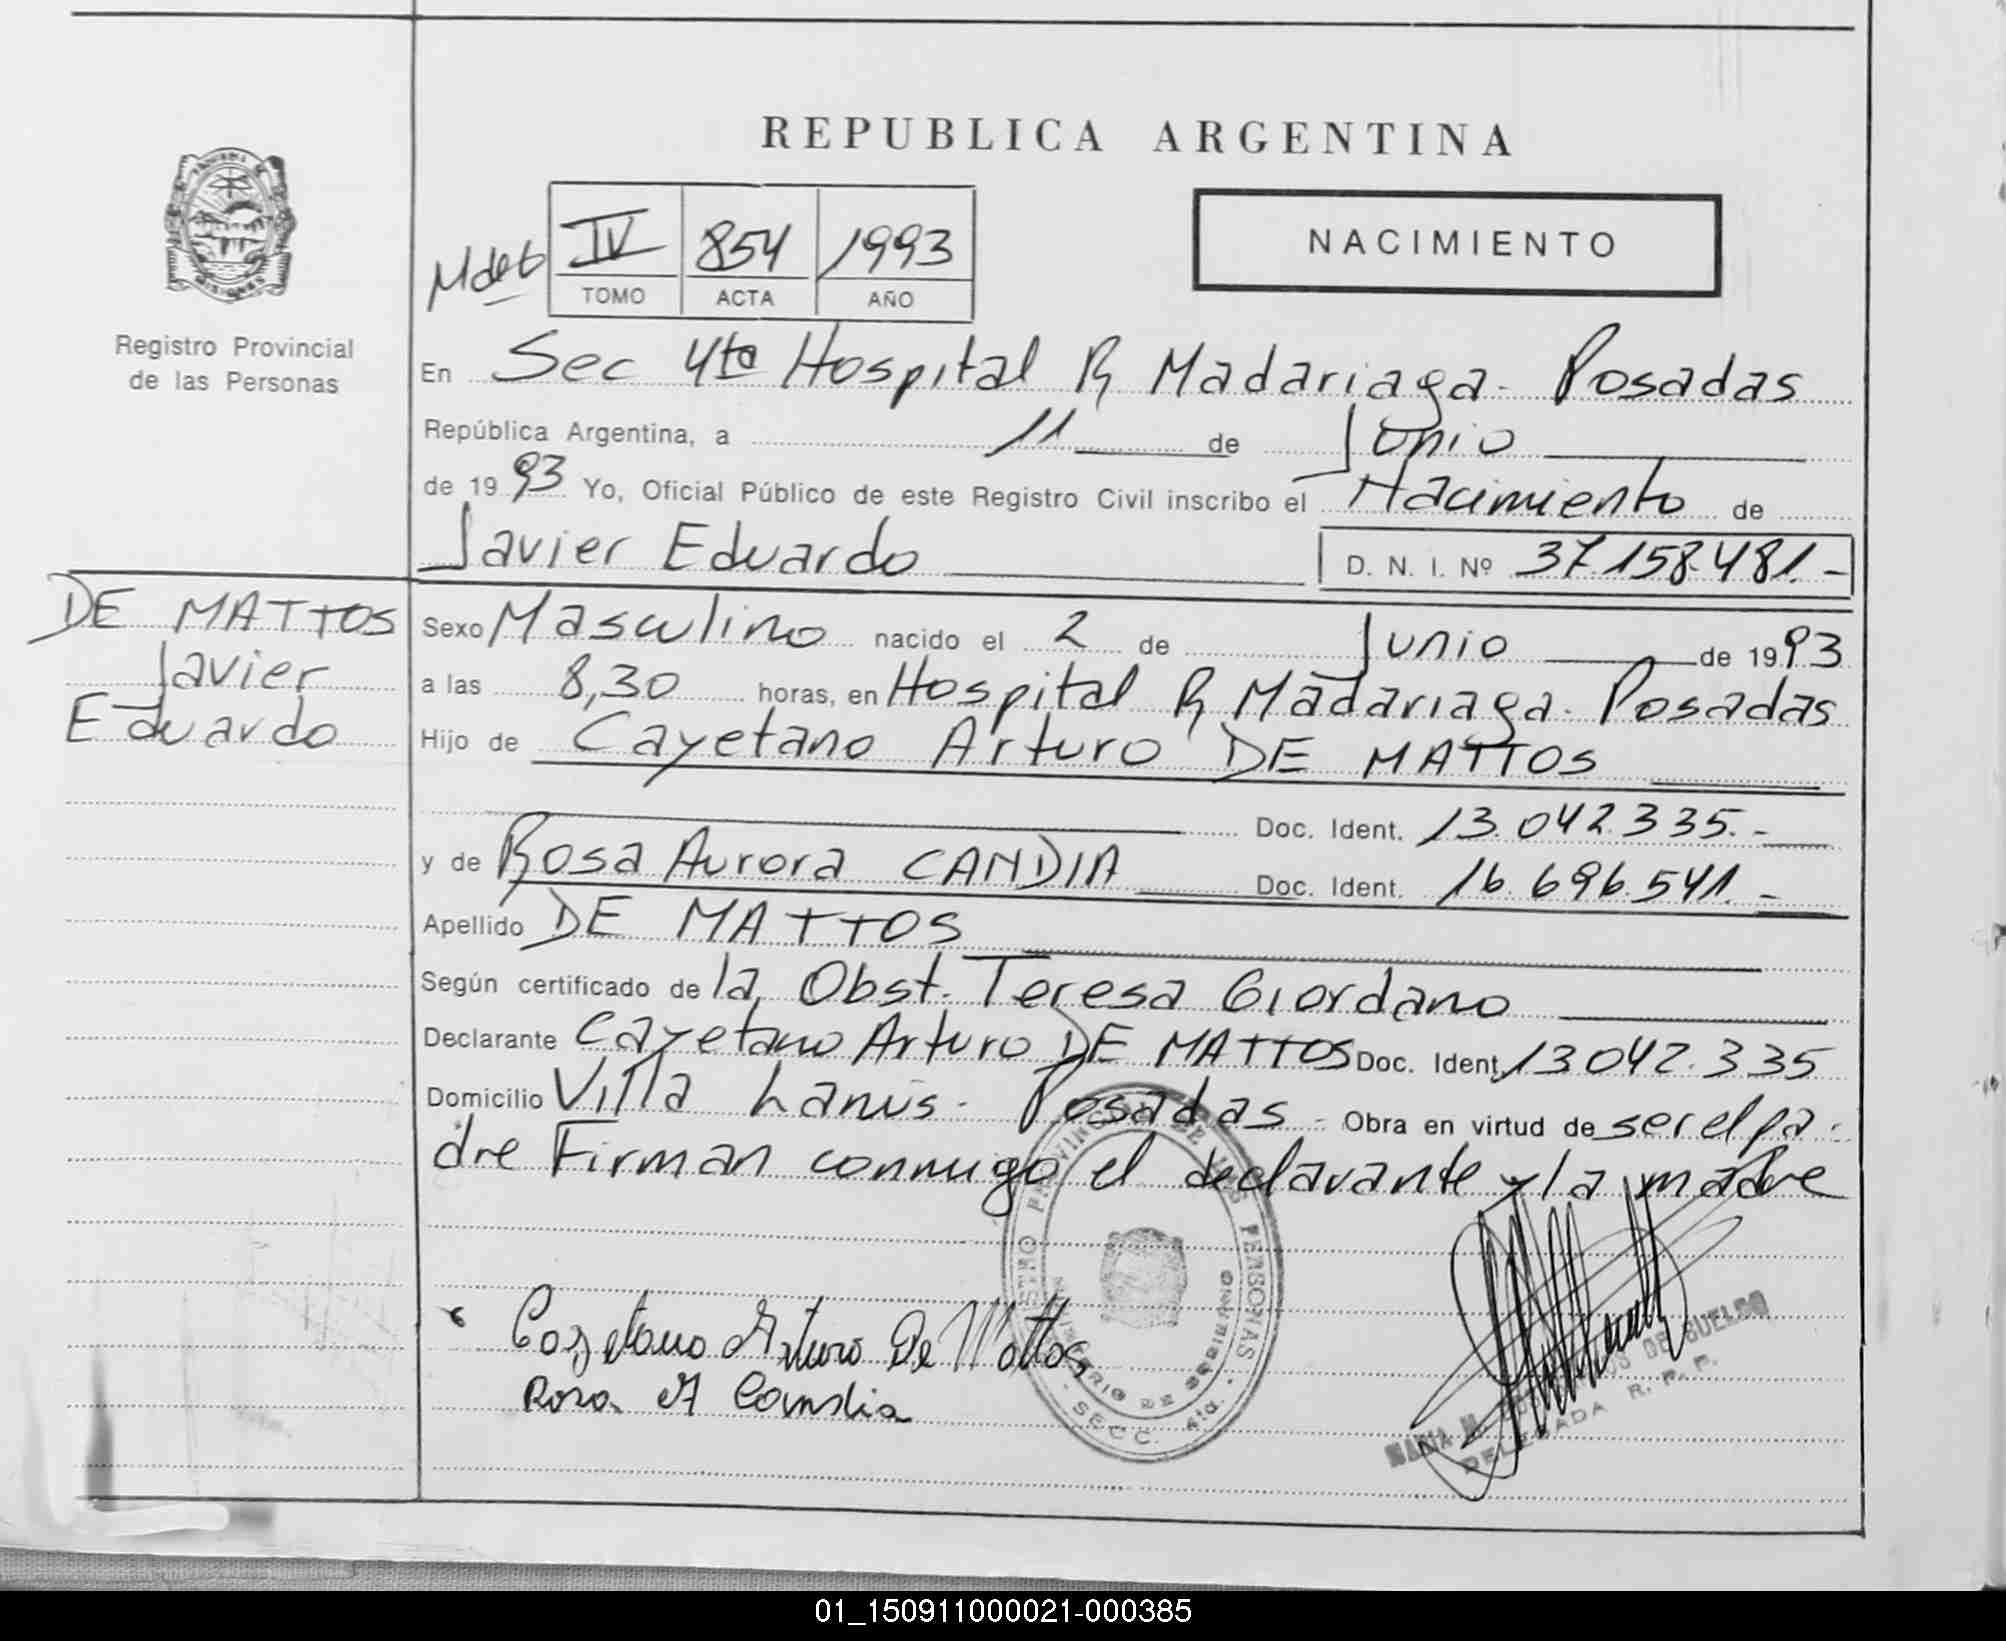 REPUBLICA ARGENTINA
NACIMIENTO
IV 854 1993
TOMO ACTA AÑO
MISIONES
Registro Provincial
de las Personas
En Sec 4ta Hospital R Madariaga - Posadas
República Argentina, a 11 de Junio
de 1993 Yo, Oficial Público de este Registro Civil inscribo el Nacimiento de
Javier Eduardo D. N. I. Nº 37.158.481.-
DE MATTOS
Javier
Eduardo
Sexo Masculino nacido el 2 de Junio de 1993
a las 8,30 horas, en Hospital R Madariaga - Posadas
Hijo de Cayetano Arturo DE MATTOS
Doc. Ident. 13.042.335.-
y de Rosa Aurora CANDIA Doc. Ident. 16.696.541.-
Apellido DE MATTOS
Según certificado de la Obst. Teresa Giordano
Declarante Cayetano Arturo DE MATTOS Doc. Ident. 13.042.335
Domicilio Villa Lanus - Posadas - Obra en virtud de ser el pa-
dre Firman conmigo el declarante y la madre
Cayetano Arturo De Mattos
Rosa A Candia
PROVINCIAL DE LAS PERSONAS
MINISTERIO DE GOBIERNO
SECC. 4ta.
DE SUELDO
DELEGADA R. P. P.
01_150911000021-000385